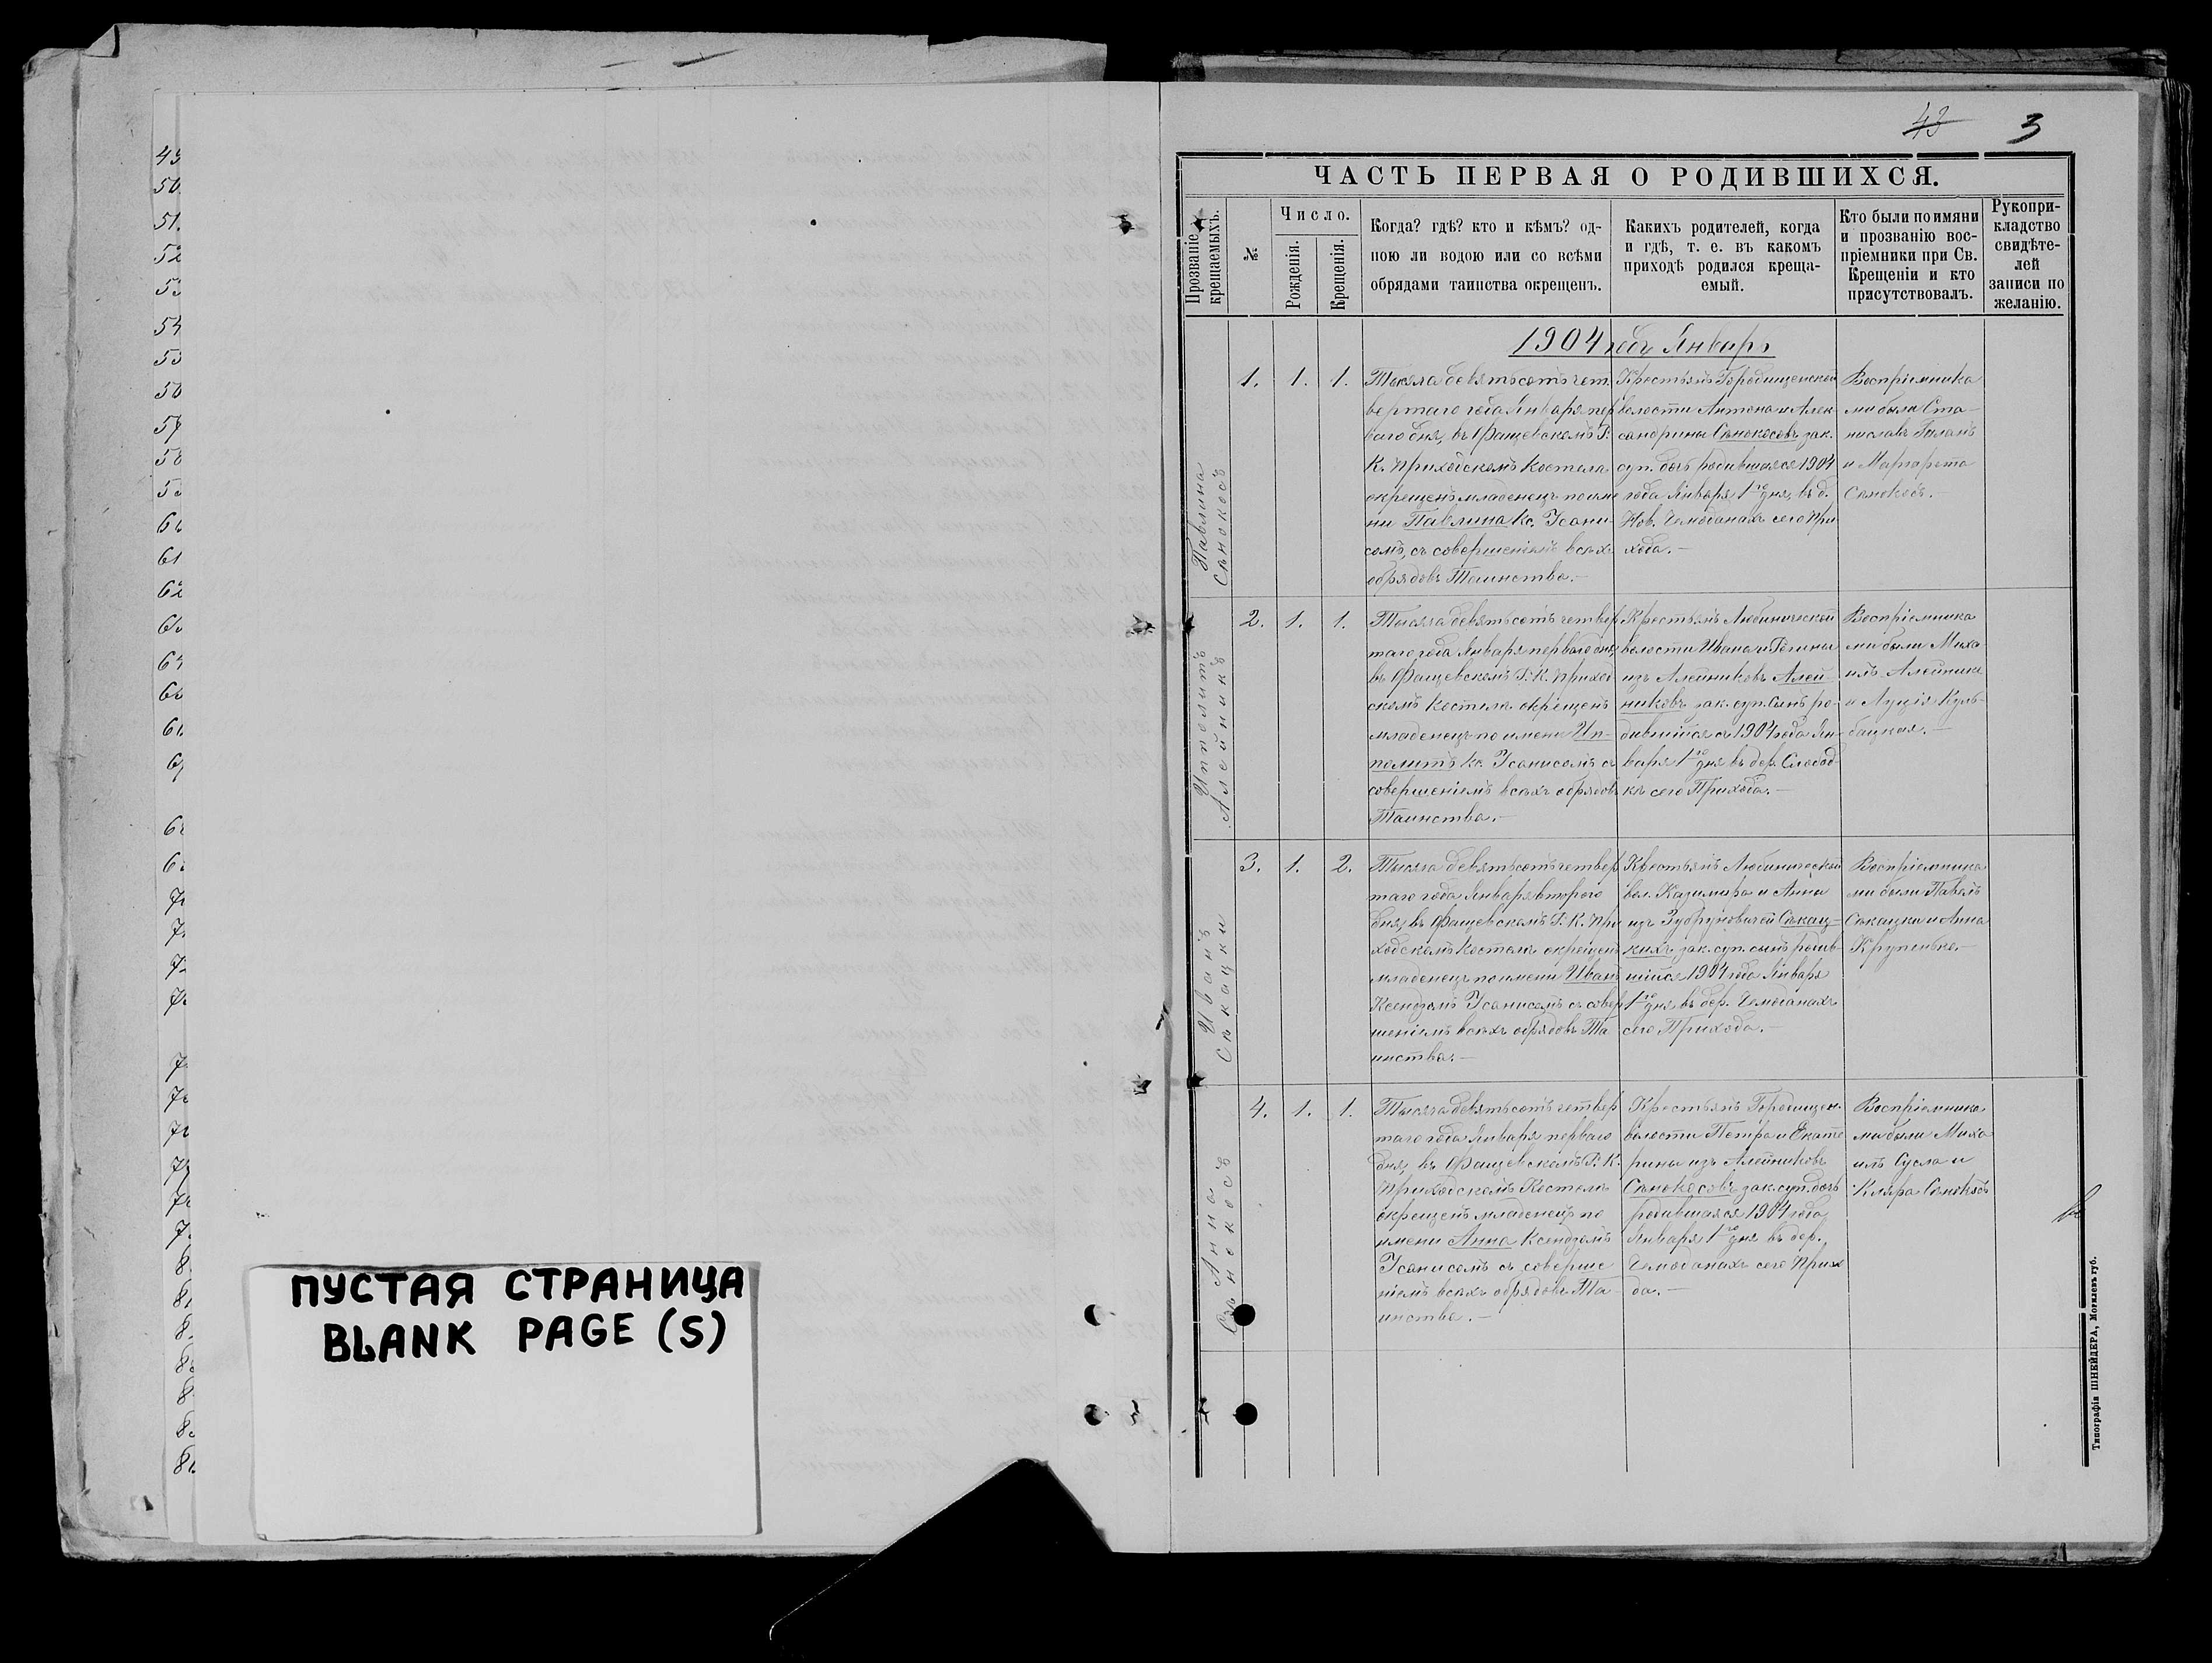 43 3
ЧАСТЬ ПЕРВАЯ О РОДИВШИХСЯ.
Прозваніе крещаемыхъ.
№
Число.
Рожденія.
Крещенія.
Когда? гдѣ? кто и кѣмъ? од-
ною ли водою или со всѣми
обрядами таинства окрещенъ.
Какихъ родителей, когда
и гдѣ, т. е. въ какомъ
приходѣ родился креща-
емый.
Кто были по имяни
и прозванію вос-
пріемники при Св.
Крещеніи и кто
присутствовалъ.
Рукопри-
кладство
свидѣте-
лей
записи по
желанію.
1904 годъ Январь
Павлина
Сѣнокосъ
1. 1. 1.
Тысяча девятьсотъ чет-
вертаго года Января пер
ваго дня, въ Фащевскомъ Р.
К. Приходскомъ костелѣ
окрещенъ младенецъ по име
ни Павлина Кс.
сомъ, съ совершеніемъ всѣхъ
обрядовъ Таинства.—
Крестьянъ Городищенской
волости Антона и Алек
сандрины Сѣнокосовъ зак.
суп. дочь родившаяся 1904
года Января 1го дня, въ д.
Нов. Чемоданахъ сего При
хода.—
Воспріемника
ми были Ста-
ниславъ
и Маргарета
Сѣнокосъ.
Ипполитъ
Алейникъ
2. 1. 1.
Тысяча девятьсотъ четвер
таго года Января перваго дня,
въ Фащевскомъ Р. К. Приход
скомъ костелѣ окрещенъ
младенецъ по имени Ип-
политъ Кс. съ
совершеніемъ всѣхъ обрядовъ
Таинства.—
Крестьянъ Любинической
волости Ивана и Регины
изъ Алейниковъ Алей-
никовъ зак. суп. сынъ ро-
дившійся 1904 года Ян-
варя 1го дня въ дер. Слобод-
кѣ сего Прихода.—
Воспріемника
ми были Миха
илъ Алейникъ
и Луція Куль-
бацкая.—
Иванъ
Сѣкацки
3. 1. 2.
Тысяча девятьсотъ четвер
таго года Января втораго
дня, въ Фащевскомъ Р. К. При
ходскомъ костелѣ окрещенъ
младенецъ по имени Иванъ
Ксендзомъ съ совер
шеніемъ всѣхъ обрядовъ Та
инства.—
Крестьянъ Любинической
вол. Казимира и Анны
изъ Сѣкац-
кихъ зак. суп. сынъ родив-
шійся 1904 года Января
1го дня въ дер. Чемоданахъ
сего Прихода.—
Воспріемника
ми были Павелъ
Сѣкацки и Анна
Крупенько.—
Анна
Сѣнокосъ
4. 1. 1.
Тысяча девятьсотъ четвер
таго года Января перваго
дня, въ Фащевскомъ Р. К.
Приходскомъ Костелѣ
окрещенъ младенецъ по
имени Анна Ксендзомъ
съ соверше
ніемъ всѣхъ обрядовъ Та-
инства.—
Крестьянъ Городищен.
волости Петра и Екате
рины изъ Алейниковъ
Сѣнокосовъ зак. суп. дочь
родившаяся 1904 года
Января 1го дня въ дер.
Чемоданахъ сего Прихо
да.—
Воспріемника
ми были Миха
илъ Сусла и
Кляра Сѣнокосъ
Типографія ШНЕЙДЕРА, Могилевъ губ.
ПУСТАЯ СТРАНИЦА
BLANK PAGE (S)